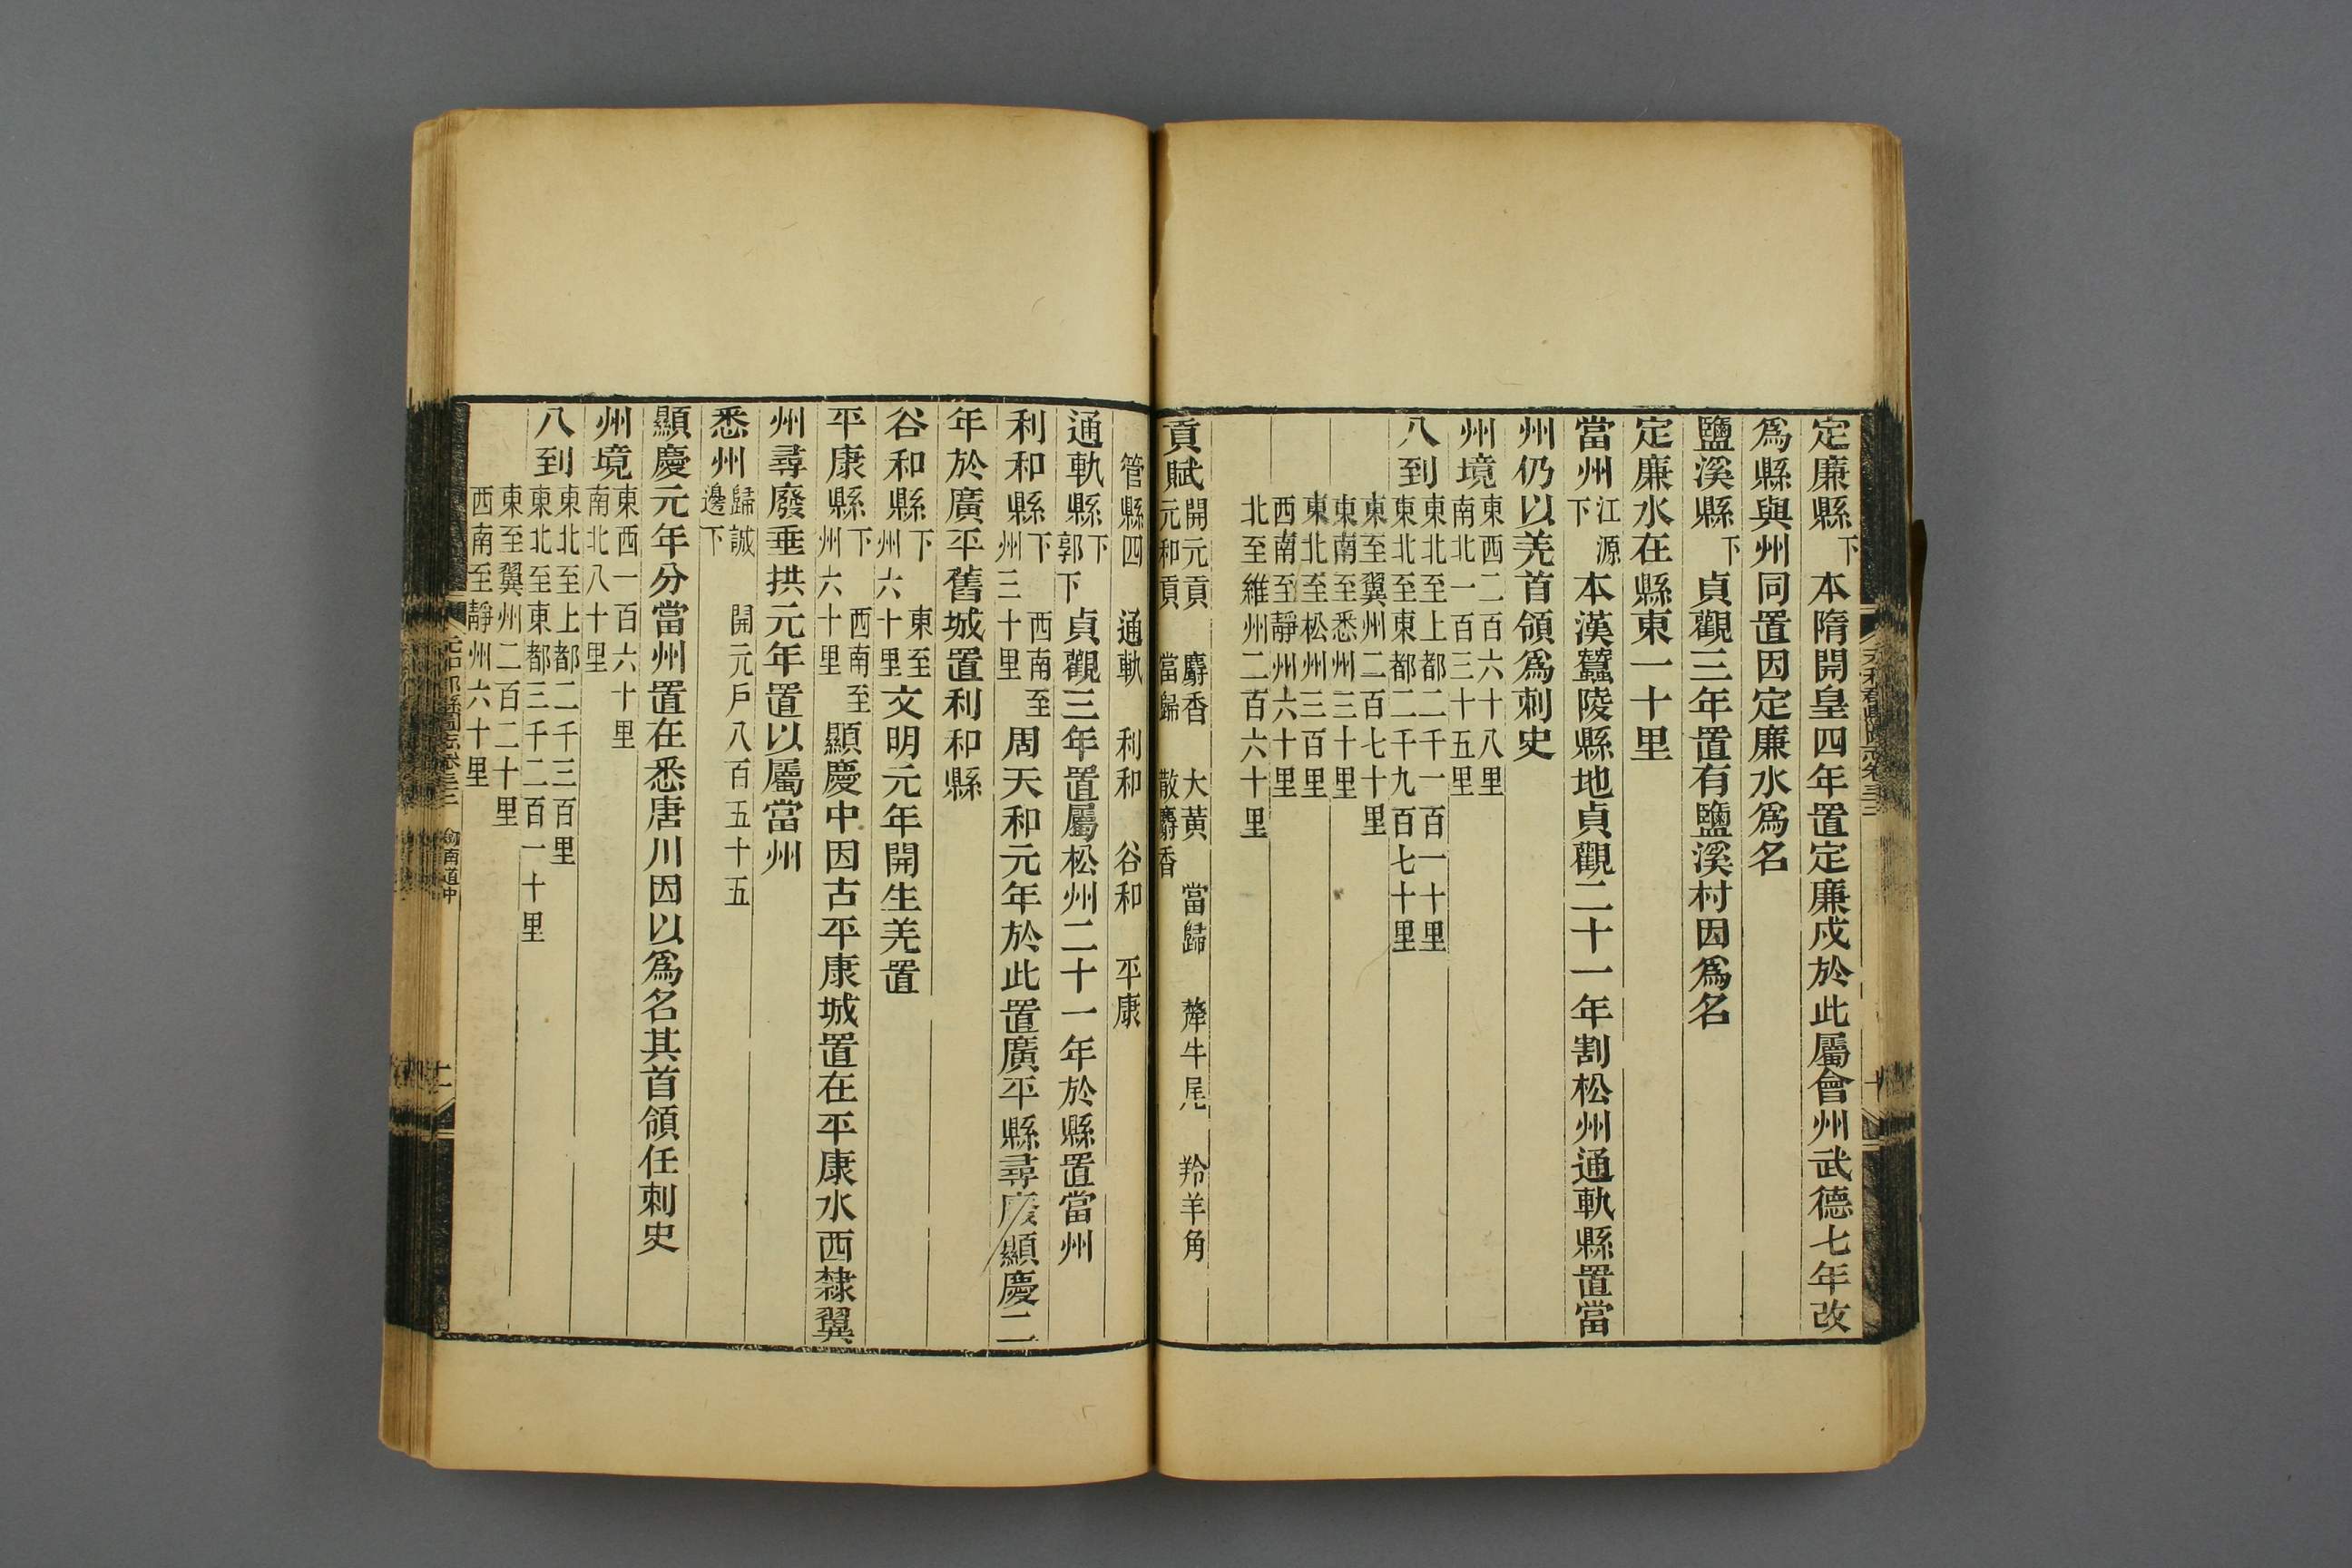 定廉縣下 本隋開皇四年置定廉戍於此屬會州武德七年改
爲縣與州同置因定廉水爲名
鹽溪縣下 貞觀三年置有鹽溪村因爲名
定廉水在縣東一十里
當州江源下 本漢蠶陵縣地貞觀二十一年割松州通軌縣置當
州仍以羌首領爲刺史
州境東西二百六十八里
南北一百三十五里
八到東北至上都二千一百一十里
東北至東都二千九百七十里
東至翼州二百七十里
東南至悉州三十里
東北至松州三百里
西南至靜州六十里
北至維州二百六十里
貢賦開元貢 麝香 大黃 當歸 犛牛尾 羚羊角
元和貢 當歸 散麝香
管縣四 通軌 利和 谷和 平康
通軌縣下郭下 貞觀三年置屬松州二十一年於縣置當州
利和縣下 西南至州三十里 周天和元年於此置廣平縣尋廢顯慶二
年於廣平舊城置利和縣
谷和縣下 東至州六十里 文明元年開生羌置
平康縣下 西南至州六十里 顯慶中因古平康城置在平康水西隸翼
州尋廢垂拱元年置以屬當州
悉州歸誠邊下 開元戶八百五十五
顯慶元年分當州置在悉唐川因以爲名其首領任刺史
州境東西一百六十里
南北八十里
八到東北至上都二千三百里
東北至東都三千二百一十里
東至翼州二百二十里
西南至靜州六十里